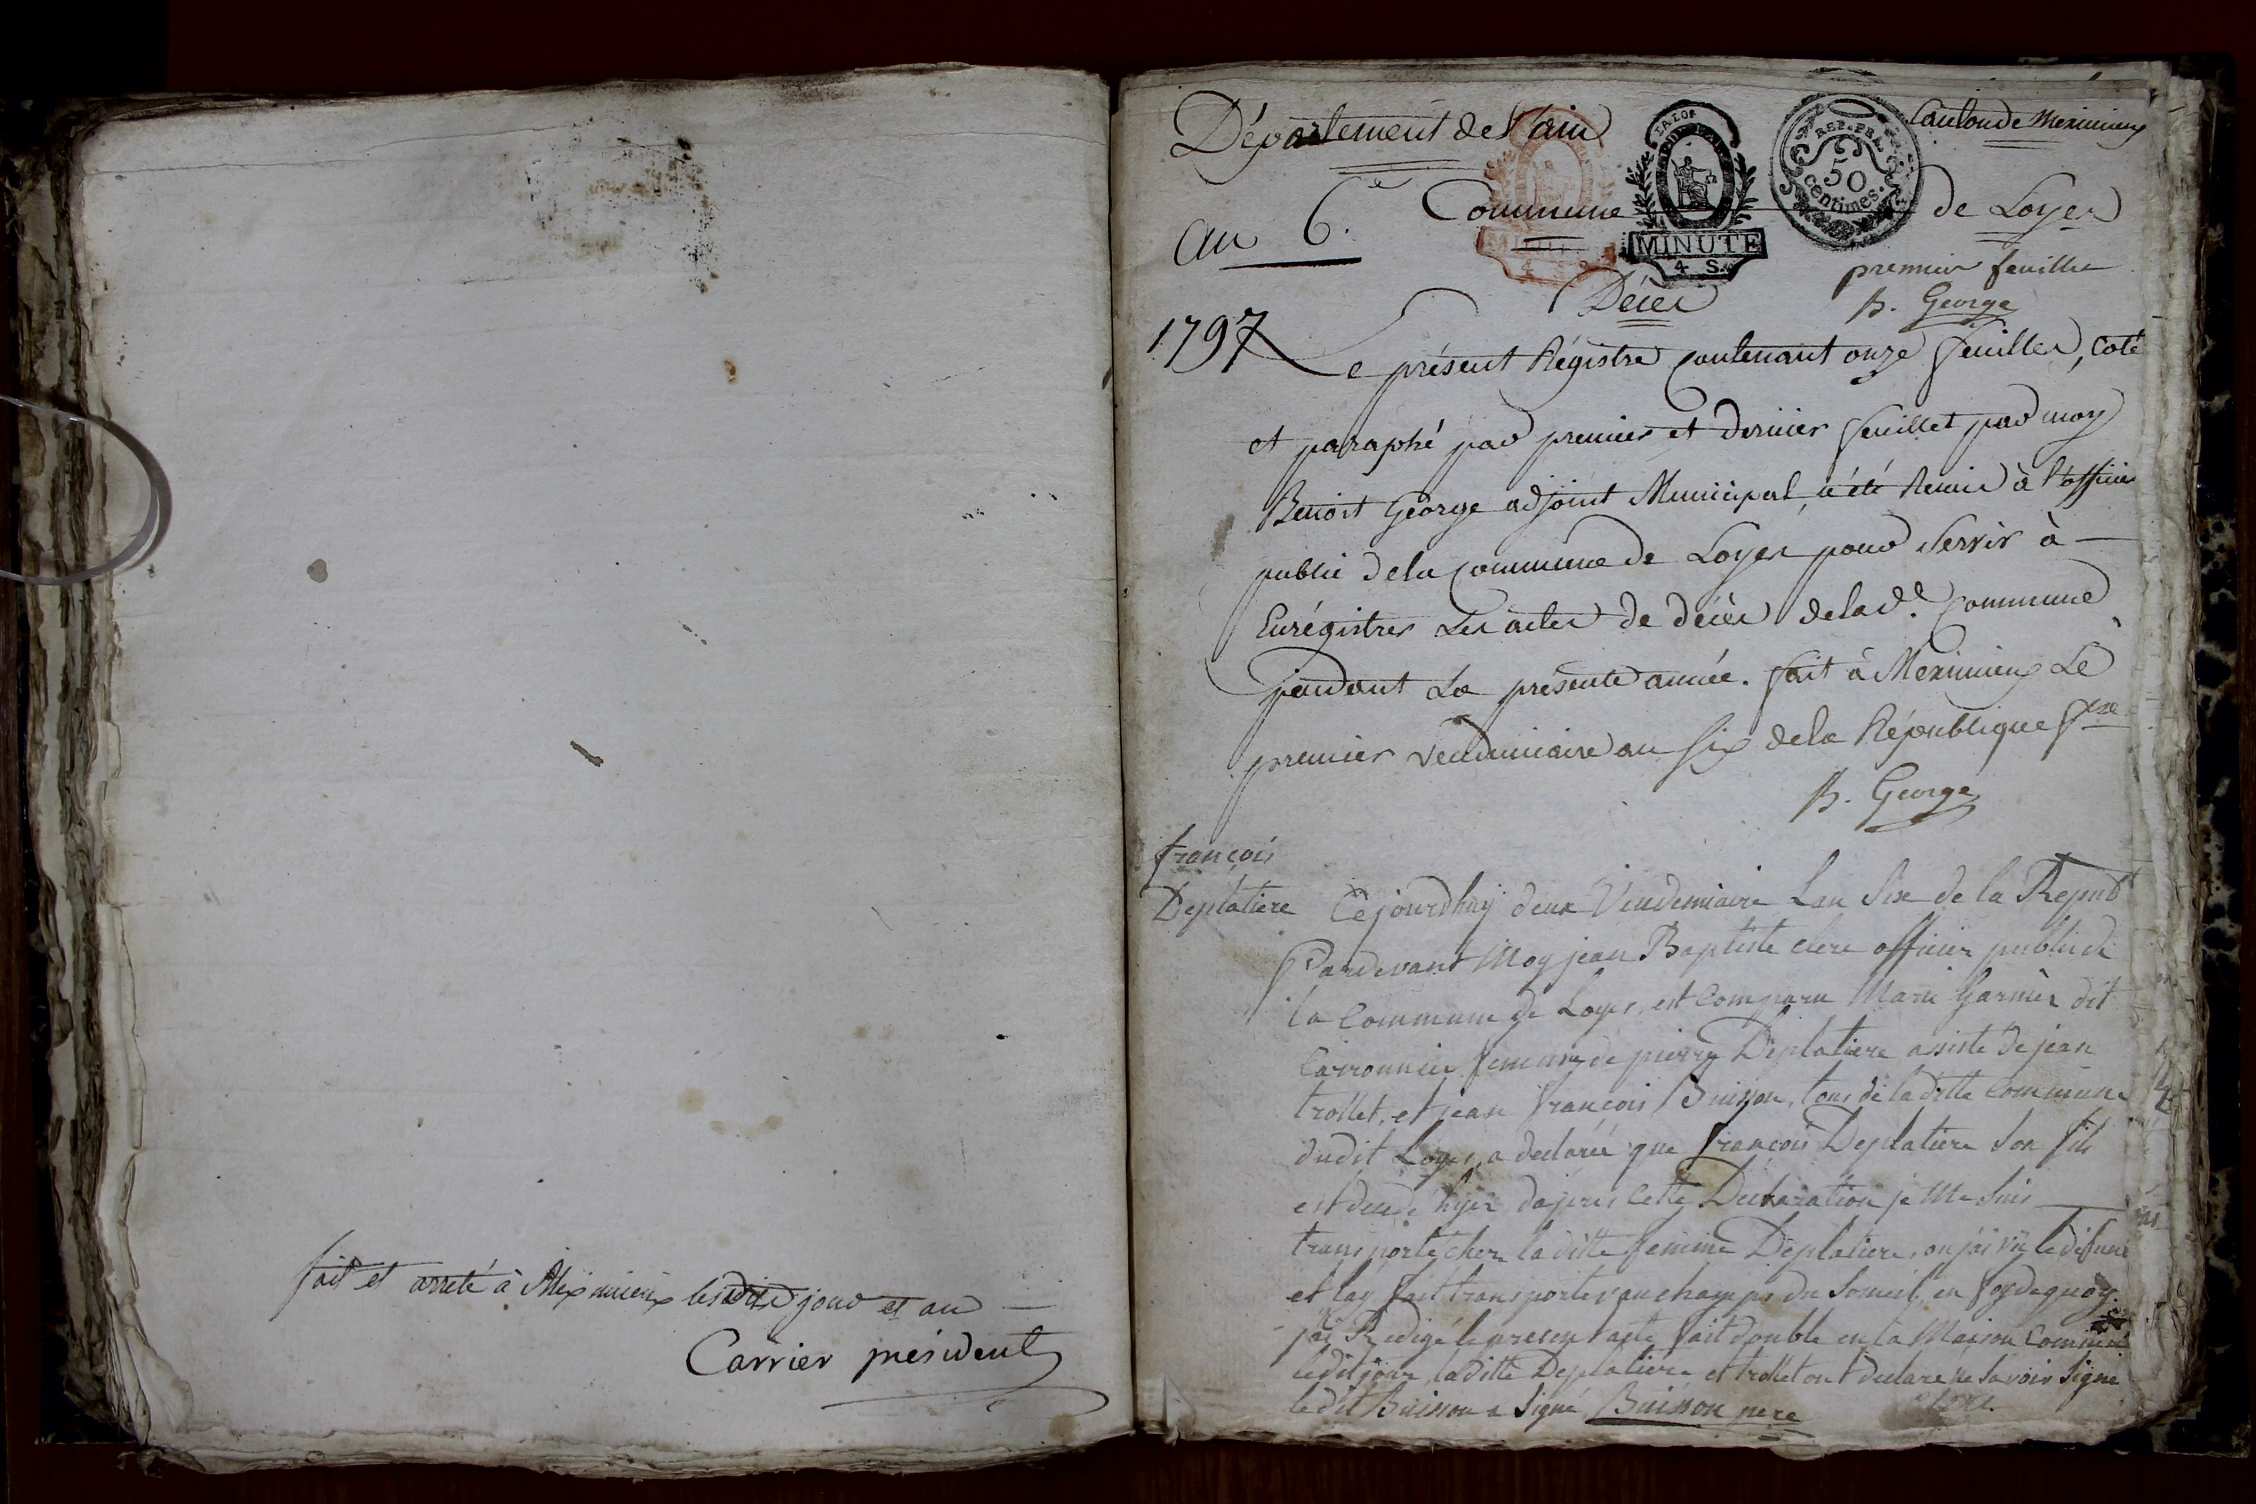 fait et arreté à Meximieux lesdits jour et an
Carrier président
Département de l'ain
Canton de Meximieux
REP. FRA.
50
centimes.
LA LOI
MINUTE
4 S.
an 6.e
Commune de Loyes
premier feuillet
B. George
Décès
1797
Le présent Régistre contenant onze feuilles, coté
et paraphé par premier et dernier feuillet par moy
Benoit George adjoint Municipal, a été Remis à l'officier
public de la commune de Loyes pour servir à
Enrégistrer Les actes de décès de lad.e Commune
pendant La présente année. fait à Meximieux Le
premier vendemiaire an six de la République f.se
B. George
françois
Deplatiere
Cejourdhuy deux Vendemiaire Lan Six de la Repub
Pardevant Moy jean Baptiste clerc officier public de
la Commune de Loyes, est Comparu Marie Garnier dit
Carronnier femme de pierre Deplatiere assiste de jean
trollet, et jean françois Buisson, tous de la ditte Commune
dudit Loyes, a declaré que françois Deplatiere Son fils
est decedé hyer dapres Cette Declaration je Me Suis
transporte chez la ditte femme Deplatiere, ou jai vu le defunt
et lay fait transporter au champs du Someil, en foy de quoy
jai Redigé le present acte fait double en la Maison Commune
ledit jour, la ditte Deplatiere et trollet ont declare ne Savoir Signe
ledit Buisson a Signé Buisson pere
clerc